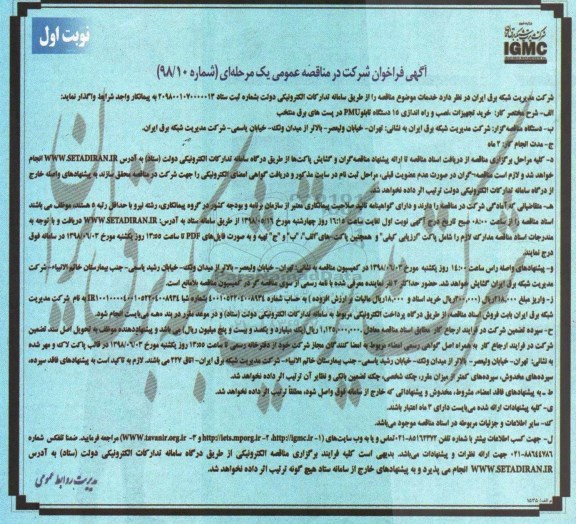 نوبت اول
شرکت مدیریت شبکه برق ایران
IGMC
آگهی فراخوان شرکت در مناقصه عمومی یک مرحله‌ای (شماره ۹۸/۱۰)
شرکت مدیریت شبکه برق ایران در نظر دارد خدمات موضوع مناقصه را از طریق سامانه تدارکات الکترونیکی دولت بشماره ثبت ستاد ۲۰۹۸۰۰۱۰۷۰۰۰۰۰۱۳ به پیمانکار واجد شرایط واگذار نماید:
الف- شرح مختصر کار: خرید تجهیزات، نصب و راه اندازی ۱۵ دستگاه تابلو PMU در پست های برق منتخب
ب- دستگاه مناقصه گزار: شرکت مدیریت شبکه برق ایران به نشانی: تهران- خیابان ولیعصر- بالاتر از میدان ونک- خیابان یاسمی- شرکت مدیریت شبکه برق ایران.
ج- مدت انجام کار: ۲ ماه
د- کلیه مراحل برگزاری مناقصه از دریافت اسناد مناقصه تا ارائه پیشنهاد مناقصه‌گران و گشایش پاکت‌ها از طریق درگاه سامانه تدارکات الکترونیکی دولت (ستاد) به آدرس WWW.SETADIRAN.IR انجام
خواهد شد و لازم است مناقصه‌گران در صورت عدم عضویت قبلی، مراحل ثبت نام در سایت مذکور و دریافت گواهی امضای الکترونیکی را جهت شرکت در مناقصه محقق سازند. به پیشنهادهای واصله خارج
از درگاه سامانه تدارکات الکترونیکی دولت ترتیب اثر داده نخواهد شد.
ه- متقاضیانی که آمادگی شرکت در مناقصه را دارند و دارای گواهینامه تائید صلاحیت پیمانکاری معتبر از سازمان برنامه و بودجه کشور در گروه پیمانکاری، رشته نیرو با حداقل رتبه ۵ هستند، موظف می باشند
اسناد مناقصه را از ساعت ۰۸:۰۰ صبح تاریخ درج آگهی نوبت اول لغایت ساعت ۱۶:۱۵ روز چهارشنبه مورخ ۱۳۹۸/۰۵/۱۶ از طریق سامانه ستاد به آدرس: WWW.SETADIRAN.IR دریافت و با توجه به
مندرجات اسناد مناقصه مدارک لازم را شامل پاکت "ارزیابی کیفی" و همچنین پاکت‌های "الف"، "ب" و "ج" تهیه و به صورت فایل‌های PDF تا ساعت ۱۳:۵۵ روز یکشنبه مورخ ۱۳۹۸/۰۶/۰۳ در سامانه فوق
درج نمایند.
و- پیشنهادهای واصله راس ساعت ۱۴:۰۰ روز یکشنبه مورخ ۱۳۹۸/۰۶/۰۳ در کمیسیون مناقصه به نشانی: تهران- خیابان ولیعصر- بالاتر از میدان ونک- خیابان رشید یاسمی- جنب بیمارستان خاتم الانبیاء- شرکت
مدیریت شبکه برق ایران گشایش خواهد شد. حضور حداکثر ۲ نفر نماینده معرفی شده با نامه رسمی از سوی مناقصه گر در کمیسیون مناقصه بلامانع است.
ز- واریز مبلغ ۲۱۸,۰۰۰ ریال (۲۰۰,۰۰۰ ریال خرید اسناد و ۱۸,۰۰۰ ریال مالیات بر ارزش افزوده) به حساب شماره ۴۰۰۱۰۵۲۲۰۴۰۰۸۹۳۴ بشماره شبا به نام شرکت مدیریت
شبکه برق ایران بابت فروش اسناد مناقصه از طریق درگاه پرداخت الکترونیکی مربوط به سامانه تدارکات الکترونیکی دولت (ستاد) و در موعد مقرر در بند «ه» می‌بایست انجام شود.
ح- سپرده تضمین شرکت در فرایند ارجاع کار مطابق اسناد مناقصه معادل ۱,۱۲۵,۰۰۰,۰۰۰ ریال (یک میلیارد و یکصد و بیست و پنج میلیون ریال) می باشد و پیشنهاددهنده موظف به تحویل اصل سند تضمین
شرکت در فرایند ارجاع کار به همراه اصل گواهی رسمی امضاء مربوط به امضا کنندگان مجاز شرکت خود از دفترخانه رسمی تا ساعت ۱۳:۵۵ روز یکشنبه مورخ ۱۳۹۸/۰۶/۰۳ در قالب پاکت لاک و مهر شده
به نشانی: تهران- خیابان ولیعصر- بالاتر از میدان ونک- خیابان رشید یاسمی- جنب بیمارستان خاتم الانبیاء- شرکت مدیریت شبکه برق ایران- اتاق ۲۲۷ می باشند. لازم به تاکید است به پیشنهادهای فاقد سپرده،
سپرده‌های مخدوش، سپرده‌های کمتر از میزان مقرر، چک شخصی، چک تضمین بانکی و نظایر آن ترتیب اثر داده نخواهد شد.
ط- به پیشنهادهای فاقد امضاء، مشروط، مخدوش و پیشنهاداتی که خارج از سامانه فوق واصل شود، مطلقاً ترتیب اثر داده نخواهد شد.
ی- کلیه پیشنهادات ارائه شده می‌بایست دارای ۳ ماه اعتبار باشند.
ک- سایر اطلاعات و جزئیات مربوطه در اسناد مناقصه موجود می‌باشد.
ل- جهت کسب اطلاعات بیشتر با شماره تلفن ۰۲۱-۸۵۱۶۲۳۷۲ تماس و یا به وب سایت‌های (۱- http://igmc.ir، ۲- http://iets.mporg.ir و ۳- WWW.tavanir.org.ir) مراجعه فرمایید. ضمنا تلفکس شماره
۰۲۱-۸۸۶۴۴۷۸۶ جهت ارائه نظرات و پیشنهادات می‌باشد. بدیهی است کلیه فرایند برگزاری مناقصه الکترونیکی از طریق درگاه سامانه تدارکات الکترونیکی دولت (ستاد) به آدرس
WWW.SETADIRAN.IR انجام می پذیرد و به پیشنهادهای خارج از سامانه ستاد هیچ گونه ترتیب اثر داده نخواهد شد.
مدیریت روابط عمومی
م الف: ۱۵۲۵